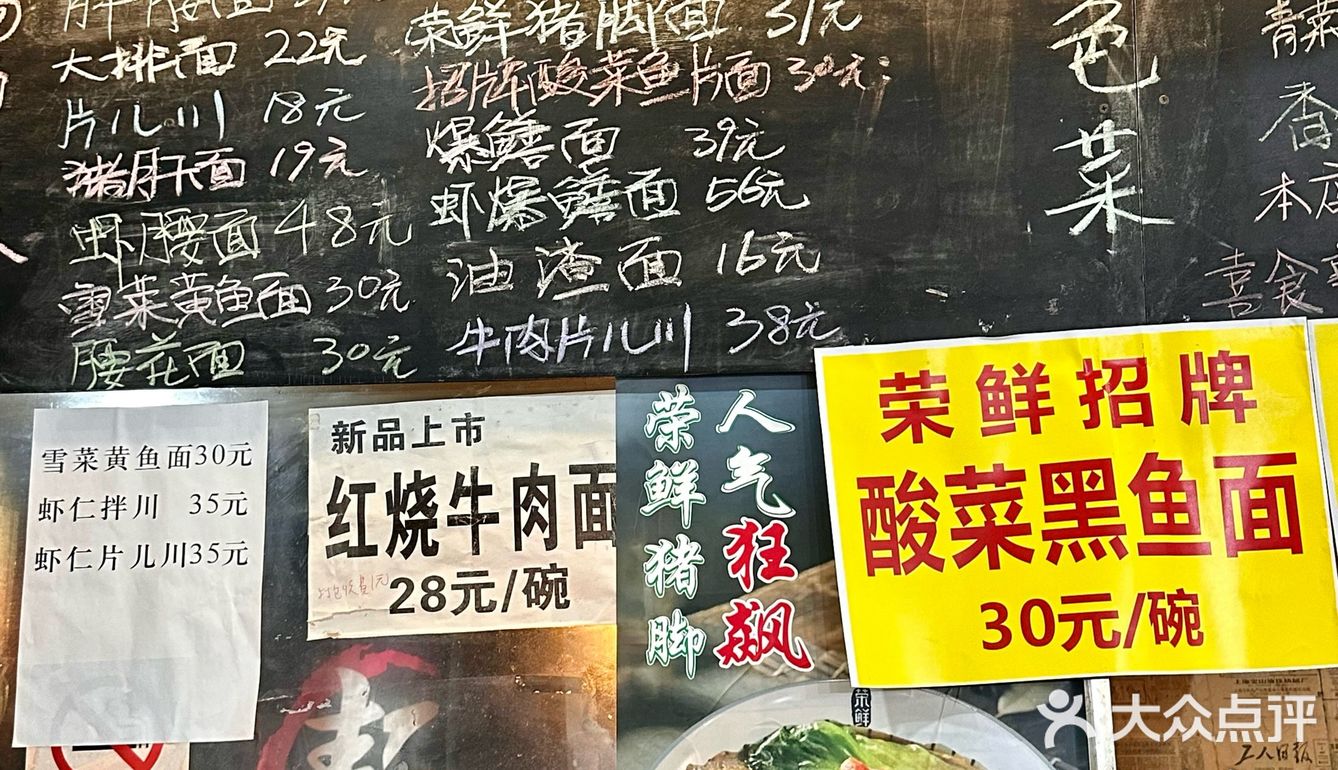 大排面 22元
片儿川 18元
猪肝面 19元
虾腰面 48元
雪菜黄鱼面 30元
腰花面 30元
荣鲜猪脚面 31元
招牌酸菜鱼片面 30元
爆鳝面 39元
虾爆鳝面 56元
油渣面 16元
牛肉片儿川 38元
色菜
青菜
香
本店
喜食
雪菜黄鱼面30元
虾仁拌川 35元
虾仁片儿川35元
新品上市
红烧牛肉面
28元/碗
人气狂飙
荣鲜猪脚
荣鲜
荣鲜招牌
酸菜黑鱼面
30元/碗
工人日报
大众点评